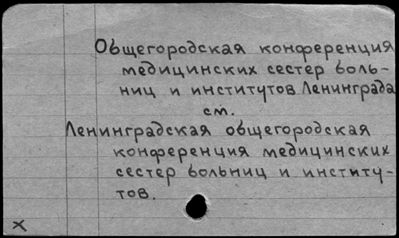 Общегородская конференция
медицинских сестер боль-
ниц и институтов Ленинграда
см.
Ленинградская общегородская
конференция медицинских
сестер больниц и институ-
тов.
x